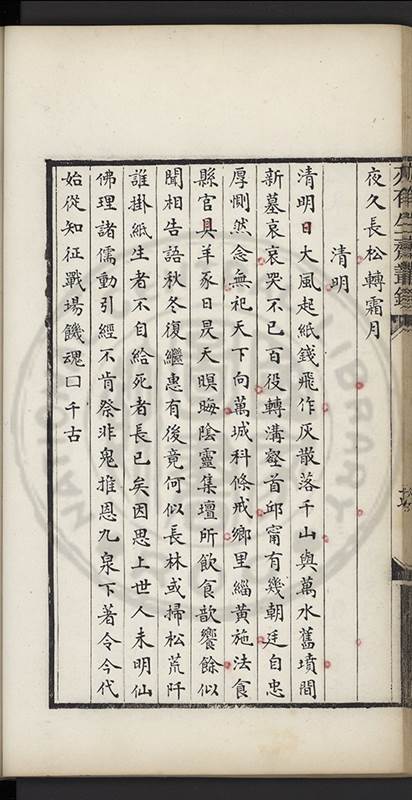 夜久長松轉霜月
清明
清明日大風起紙錢飛作灰散落千山與萬水舊墳間
新墓哀哀哭不已百役轉溝壑首邱甯有幾朝廷自忠
厚惻然念無祀天下向萬城科條戒鄉里緇黄施法食
縣官具羊豕日昃天暝晦陰靈集壇所飲食歆饗餘似
聞相告語秋冬復繼惠有後竟何似長林或掃松荒阡
誰掛紙生者不自給死者長已矣因思上世人未明仙
佛理諸儒動引經不肯祭非鬼推恩九泉下著令今代
始從知征戰場饑魂口千古